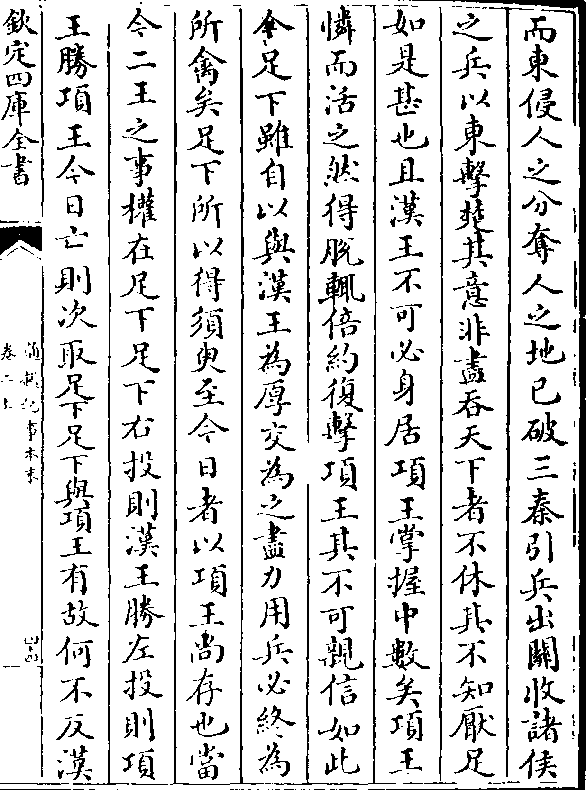 而東侵人之分奪人之地已破三秦引兵出關收諸侯
之兵以東擊楚其意非盡吞天下者不休其不知厭足
如是甚也且漢王不可必身居項王掌握中數矣項王
憐而活之然得脫輒倍約復擊項王其不可親信如此
今足下雖自以與漢王為厚交為之盡力用兵必終為
所禽矣足下所以得須臾至今日者以項王尚存也當
今二王之事權在足下足下右投則漢王勝左投則項
王勝項王今日亡則次取足下足下與項王有故何不反漢
欽定四庫全書
通鑑紀事本末
卷二上